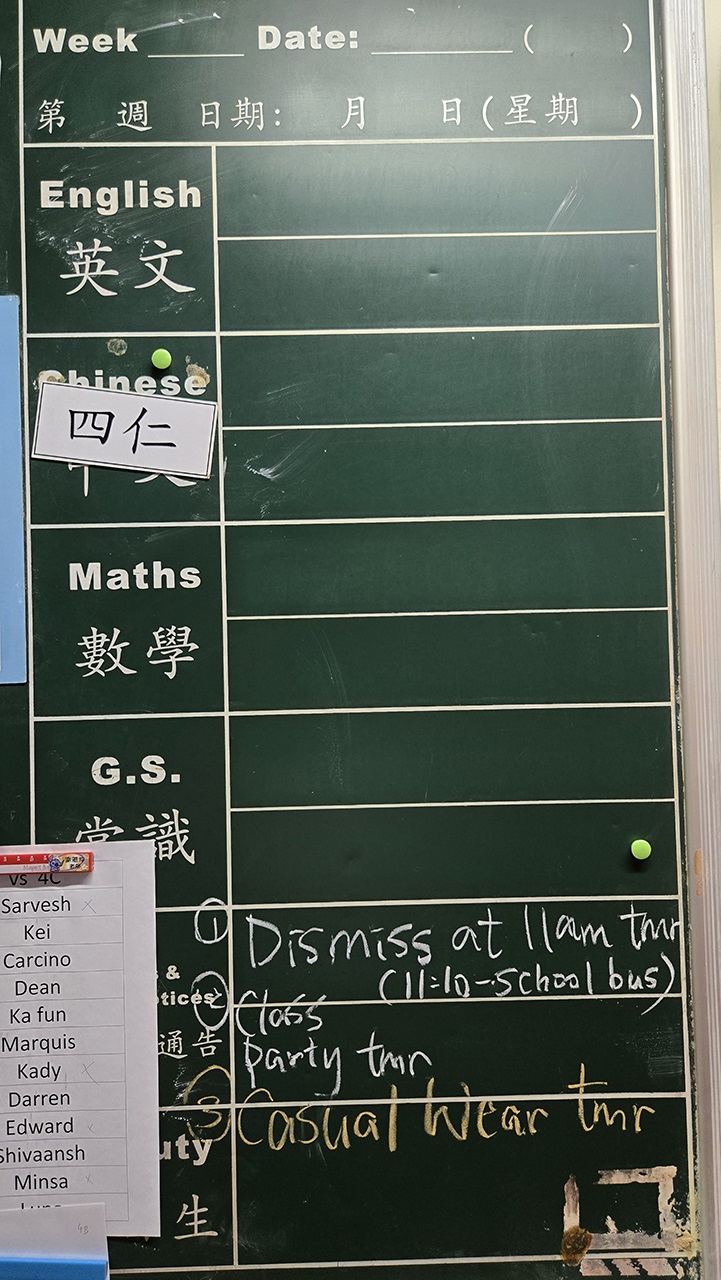 Week ____ Date: ________ ( )
第 週 日期: 月 日(星期 )
English
英文
Chinese
四仁
Maths
數學
G.S.
常識
vs 4C
Sarvesh
Kei
Carcino
Dean
Ka fun
Marquis
Kady
Darren
Edward
Shivaansh
Minsa
4B
① Dismiss at 11am tmr
(11:10-school bus)
&
② Class
通告 party tmr
③ Casual Wear tmr
生